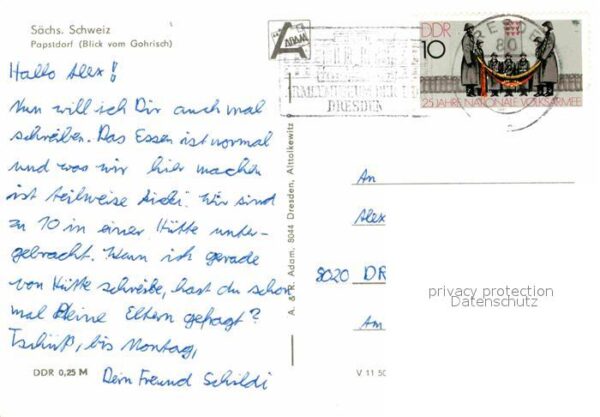 Sächs. Schweiz
Papstdorf (Blick vom Gohrisch)
Hallo Alex!
Nun will ich Dir auch mal
schreiben. Das Essen ist normal
und was wir hier machen
ist teilweise
Wir sind
zu 10 in einer Hütte unter-
gebracht. Wenn ich gerade
von Hütte schreibe, hast du schon
mal Deine Eltern gefragt?
Tschüß, bis Montag,
Dein Freund Schildi
DDR 0,25 M
ADAM
A. & R. Adam, 8044 Dresden, Alttolkewitz
DRESDEN
DRESDEN
80
DDR
10
25 JAHRE NATIONALE VOLKSARMEE
An
Alex
8020 DR
privacy protection
Datenschutz
Am
V 11 50